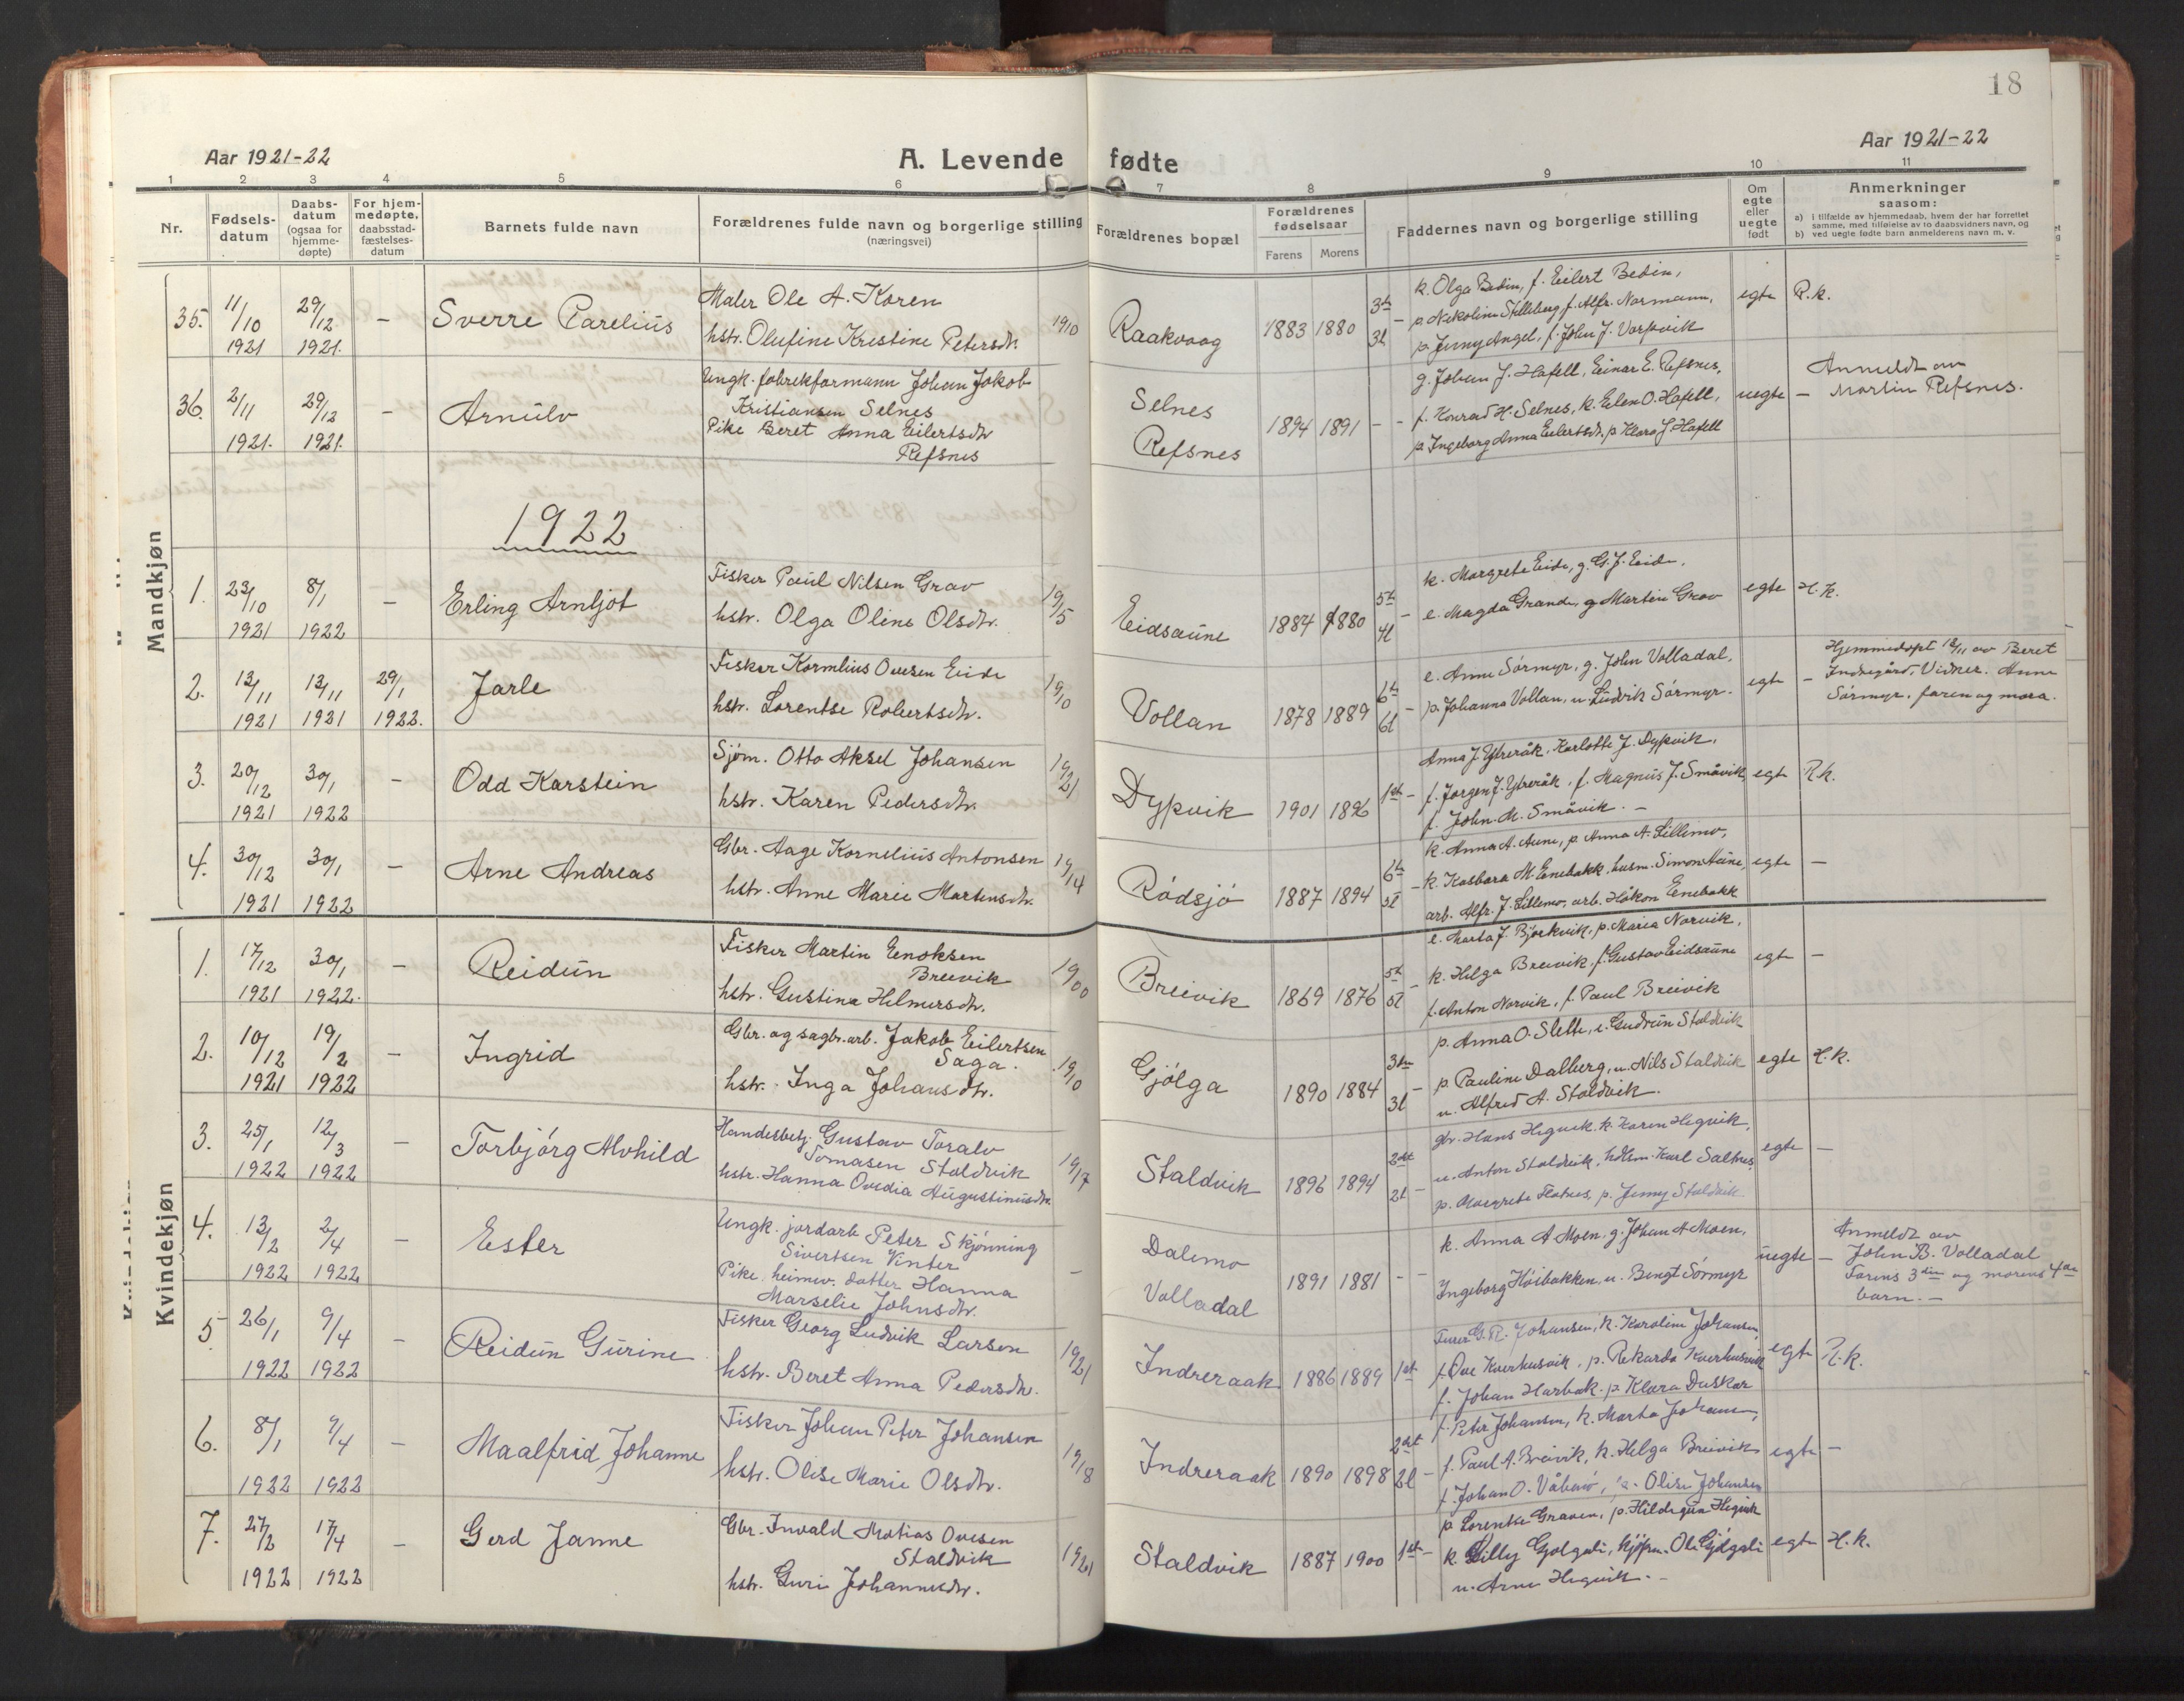 18
Aar 1921-22
A. Levende fødte
Aar 1921-22
1 2 3 4 5 6 7 8 9 10 11
Nr.
Fødsels-
datum
Daabs-
datum
(ogsaa for
hjemme-
døpte)
For hjem-
medøpte,
daabsstad-
fæstelses-
datum
Barnets fulde navn
Forældrenes fulde navn og borgerlige stilling
(næringsvei)
Forældrenes bopæl
Forældrenes
fødselsaar
Farens Morens
Faddernes navn og borgerlige stilling
Om
egte
eller
uegte
født
Anmerkninger
saasom:
a) i tilfælde av hjemmedaab, hvem der har forrettet
samme, med tilføielse av to daabsvidners navn, og
b) ved uegte fødte barn anmelderens navn m. v.
Mandkjøn
35. 11/10 1921 29/12 1921. – Sverre Parelius
Maler Ole A. Koren
hstr. Olufine Kristine Petersdtr. 1910
Raakvaag 1883 1880 3de 3l
k. Olga Bedin, f. Eilert Bedin,
– p. Nikoline Stilleberg f. Alfr. Normann,
p. Jenny Angel, f. John J. Vorpvik
egte R.k.
36. 2/11 1921. 29/12 1921. – Arnulv
Ungk. fabrikformann Johan Jakob
Kristiansen Selnes
Pike Beret Anna Eilertsdtr
Refsnes
Selnes
Refsnes
1894 1891 – –
g. Johan J. Hafell, Einar E. Refsnes,
f. Konrad H. Selnes, k. Eilen O. Hafell,
p. Ingeborg Anna Eilertsdtr. p. Klara J. Hafell
uegte –
Anmeldt av
Martin Refsnes.
1922
1. 23/10 1921 8/1 1922 – Erling Arnljot
Fisker Paul Nilsen Grav
hstr. Olga Oline Olsdtr. 1915
Eidsaune 1884 1880 5te 4l –
k. Margrete Eide, g. G. J. Eide,
e. Magda Grande, g Martin Grav
egte H.k.
2. 13/11 1921 13/11 1921 29/1 1922. Jarle
Fisker Kornelius Ovesen Eide
hstr. Lorentse Robertsdtr. 1910
Vollan 1878 1889 6te 6l –
e. Anne Sørmyr, g. John Volladal,
p. Johanna Vollan, u Ludvik Sørmyr.
egte –
Hjemmedøpt 13/11 av Beret
Indregård, Vidner. Anne
Sørmyr, faren og mora.
3. 20/12 1921 30/1 1922 – Odd Karstein
Sjøm. Otto Aksel Johansen
hstr. Karen Pedersdtr. 1921
Dypvik 1901 1896 1ste –
Anna J. Ytreråk, Karlotte J. Dypvik,
f. Jørgen J. Ytreråk, f. Magnus J. Småvik
f. John. M. Småvik. –
egte R.k.
4. 30/12 1921 30/1 1922 – Arne Andreas
Gbr. Aage Kornelius Antonsen
hstr. Anne Marie Martinsdtr. 1914
Rødsjø 1887 1894 6te 5l
k. Anna A. Aune, p. Anna A. Lillemo,
– k. Kasbara M. Enebakk. husm. Simon Aune,
arb. Alfr. J. Lillemo, arb. Håkon Enebakk
egte –
Kvindekjøn
1. 17/12 1921 30/1 1922. – Reidun
Fisker Martin Enoksen
Breivik
hstr. Gustina Hilmersdtr. 1900
Breivik 1869 1876 5te 5l –
e. Marta J. Bjørkvik, p. Maria Norvik,
k. Helga Breivik, f. Gustav Eidsaune
f. Anton Norvik, f. Paul Breivik
egte –
2. 10/12 1921 19/2 1922 – Ingrid
Gbr. og sagbr.arb. Jakob Eilertsen
Saga.
hstr. Inga Johansdtr. 1910
Gjølga 1890 1884 3die 3l –
p. Anna O. Slette, e. Gudrun Staldvik
p. Pauline Dalberg, u. Nils Staldvik
u. Alfred A. Staldvik.
egte H.k.
3. 25/1 1922 12/3 1922 – Torbjørg Alvhild
Handelsbetj. Gustav Toralv
Tomasen Staldvik
hstr. Hanna Ovedia Augustinusdtr. 1917
Staldvik 1896 1894 2det 2l –
gbr. Hans Hegvik k. Karen Hegvik,
u. Anton Staldvik, hdlsm. Karl Saltnes,
p. Margrete Flatnes, p. Jenny Staldvik
egte –
4. 13/2 1922 2/4 1922 – Ester
Ungk. jordarb Peter Skjønning
Sivertsen Vinter
Pike. heimev. datter Hanna
Marselie Johnsdtr. –
Dalemo
Volladal
1891 1881 – –
k. Anna A Moen. g. Johan A Moen,
Ingeborg Høibakken, u. Bengt Sørmyr
uegte –
Anmeldt av
John B. Volladal
Farens 3die og morens 4de
barn. –
5 26/1 1922 9/4 1922 – Reidun Gurine
Fisker Georg Ludvik Larsen
hstr. Beret Anna Pedersdtr. 1921
Indreraak 1886 1889 1ste
G. R. Johansen, k. Karoline Johansen,
f. Ove Kverhusvik, p. Rekarda Kverhusvik
f. Johan Harbak. p. Klara Duskar
egte R.k.
6. 8/1 1922 9/4 1922 – Maalfrid Johanne
Fisker Johan Peter Johansen
hstr. Olise Marie Olsdtr. 1918
Indreraak 1890 1898 2det 2l –
f. Peter Johansen, k. Marta Johansen,
f. Paul A. Breivik, k. Helga Breivik
f. Johan O. Olise Johansen
egte –
7. 27/2 1922 17/4 1922 – Gerd Janne
Gbr. Invald Matias Ovesen
Staldvik
hstr. Guri Johannesdtr. 1921
Staldvik 1887 1900 1ste –
p Lorentse Graven, p. Hildegun Hegvik
k. Lilly Gjølgali, kjøpm. Ole Gjølgali
u. Arne Hegvik. –
egte H.k.